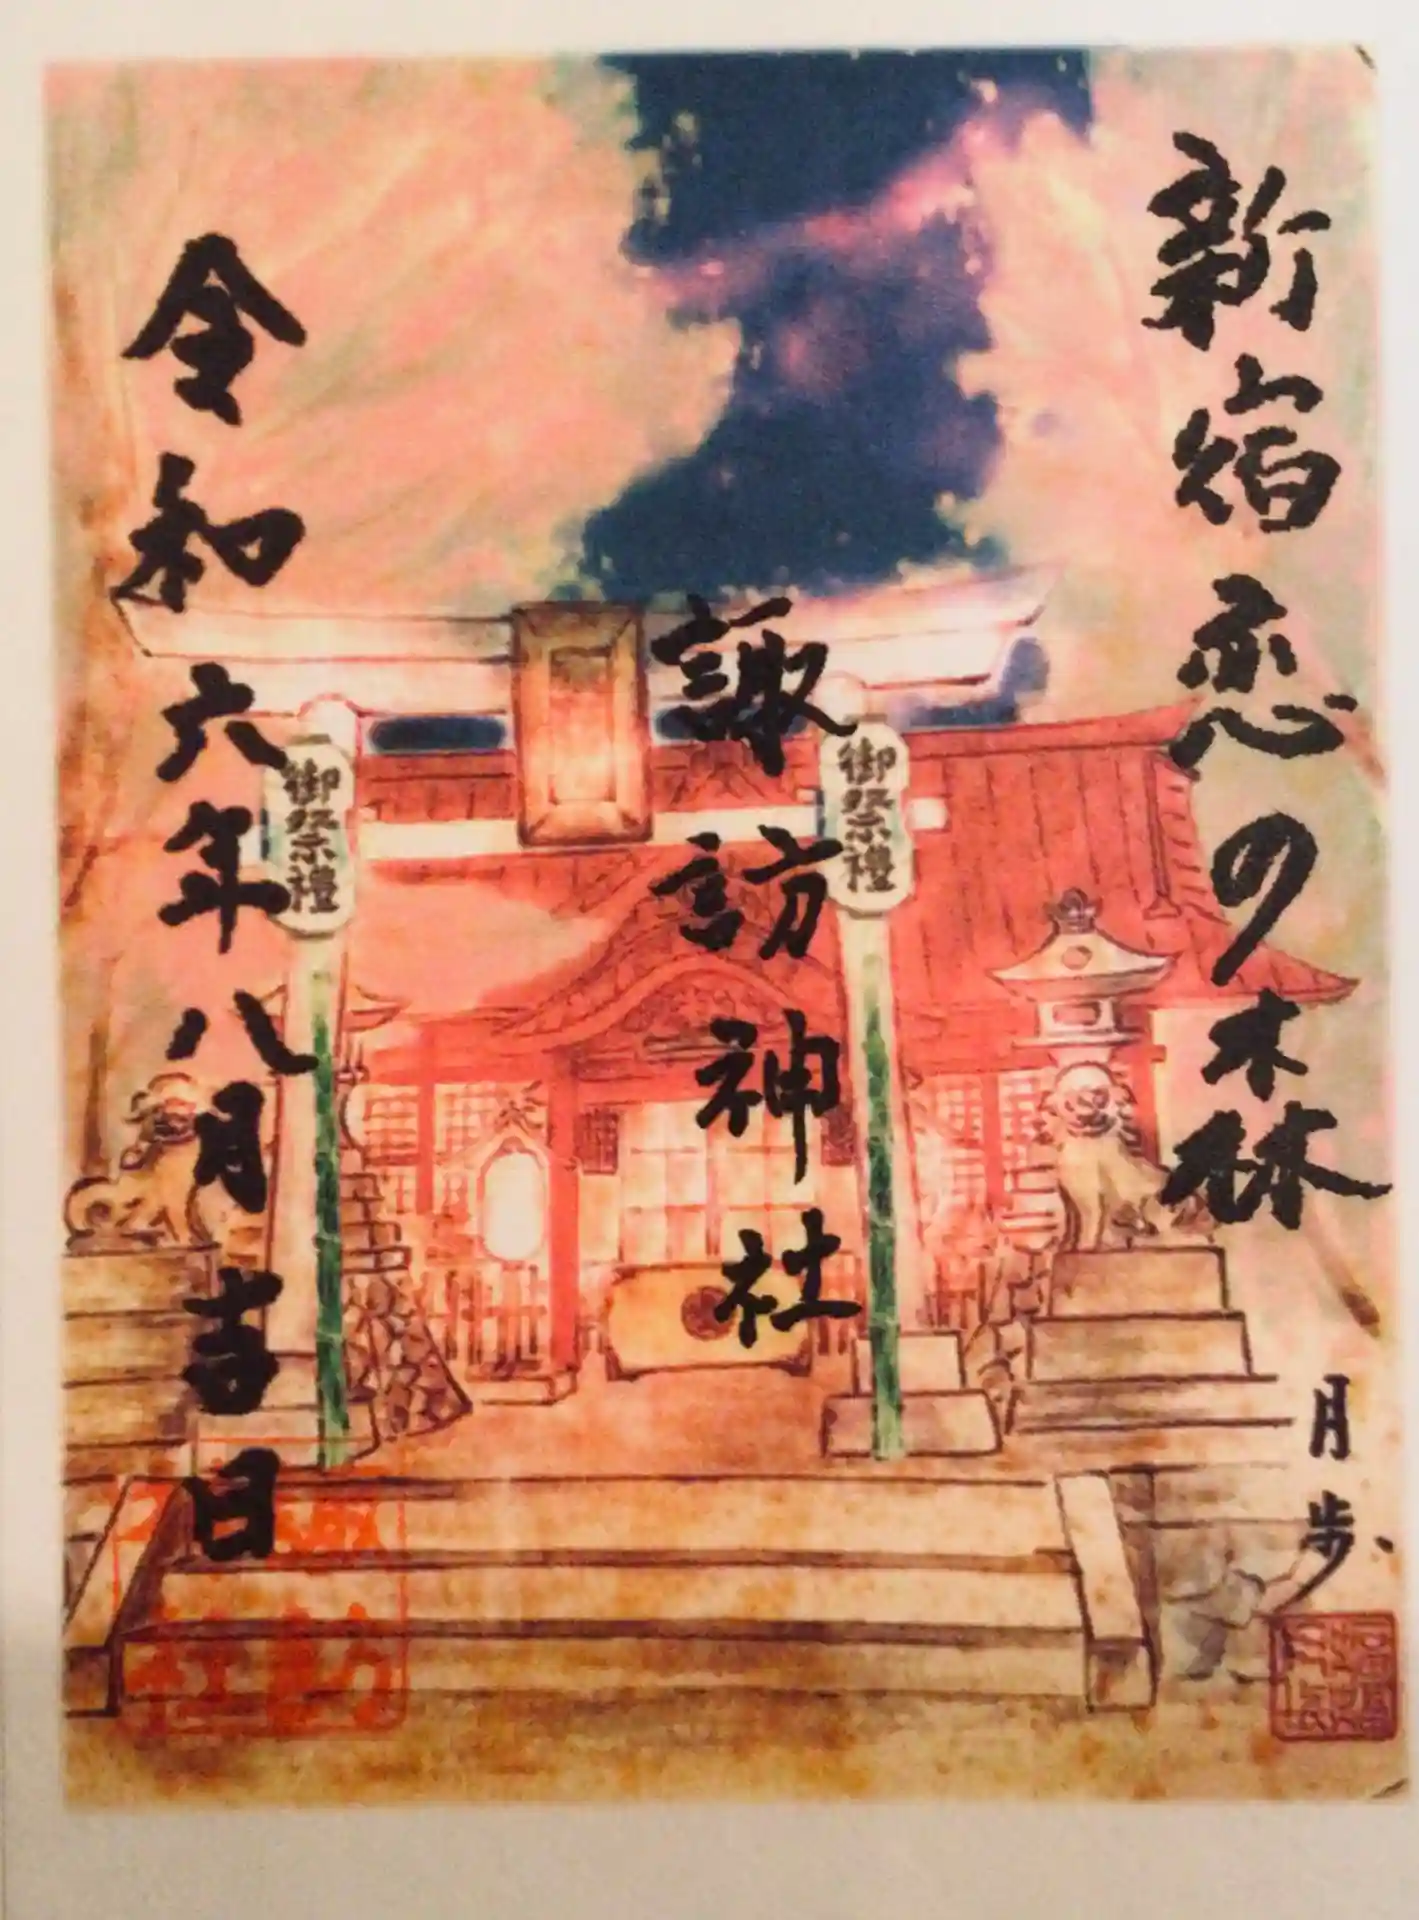 新宿恋の森
月歩
諏訪神社
御祭禮
御祭禮
令和六年八月吉日